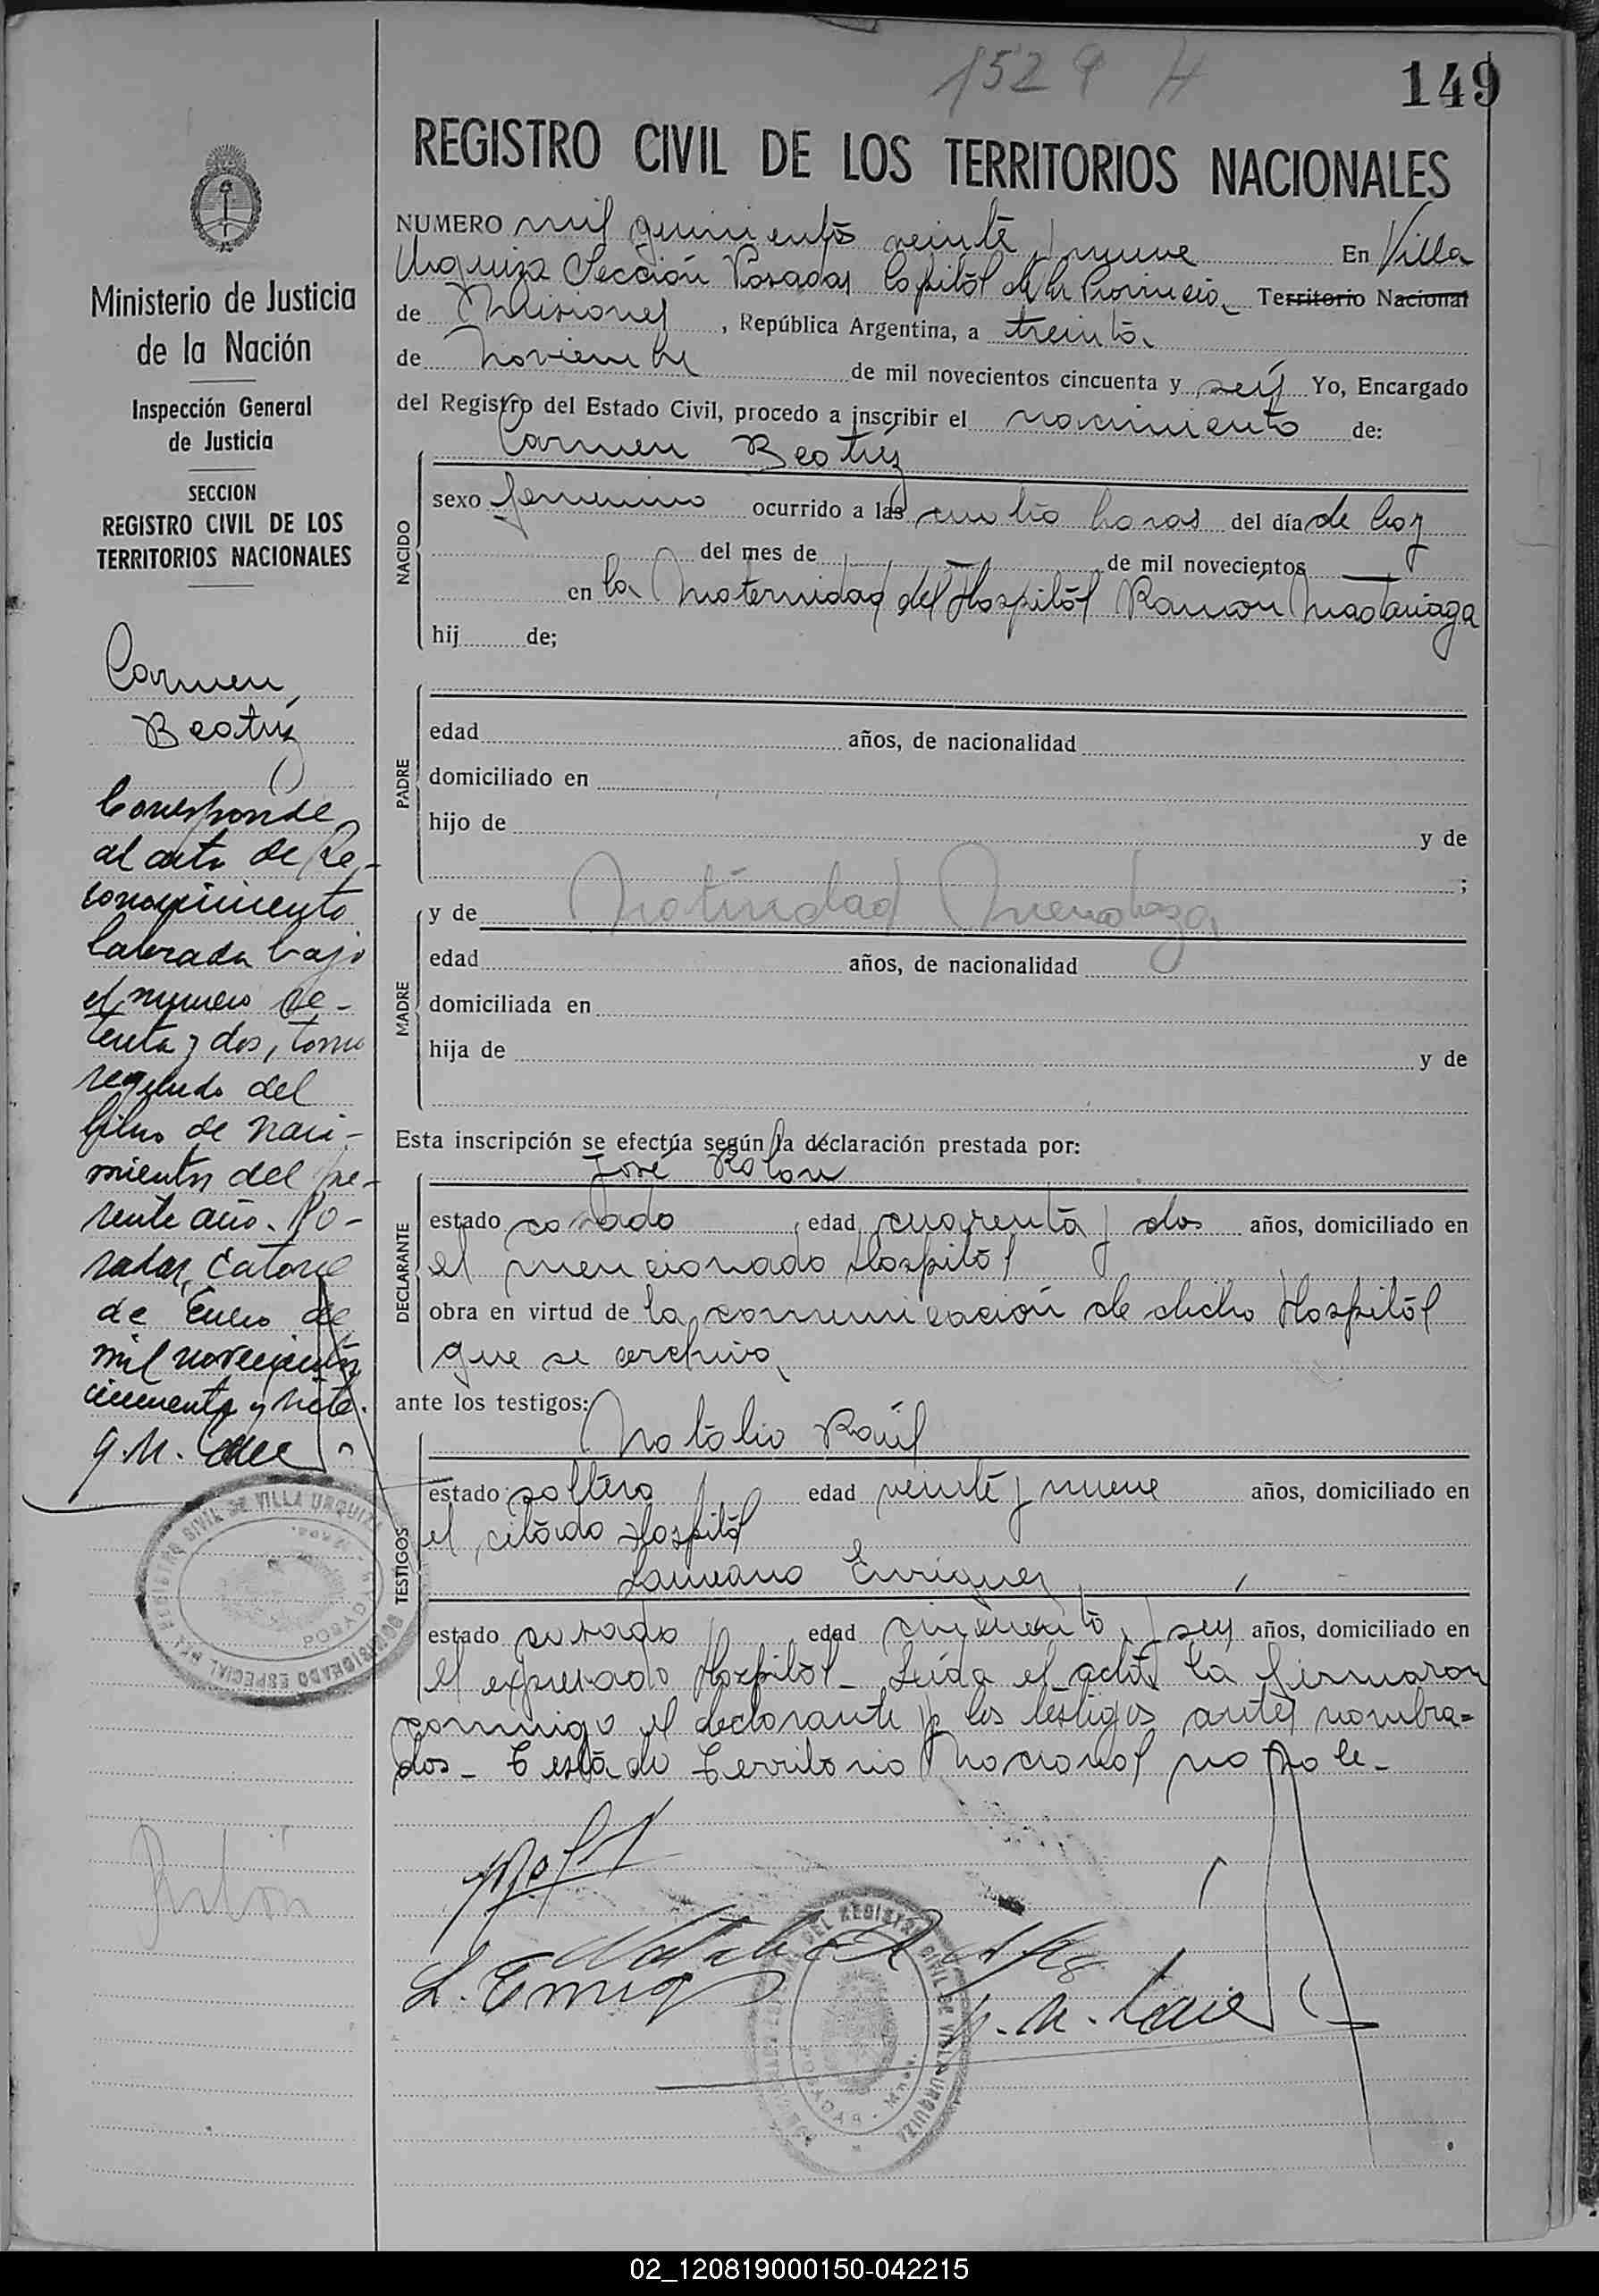 1529 H
149
REGISTRO CIVIL DE LOS TERRITORIOS NACIONALES
NUMERO mil quinientos veinte y nueve En Villa
Urquiza Sección Posadas Capital de la Provincia Territorio Nacional
de Misiones, República Argentina, a treinta
de Noviembre de mil novecientos cincuenta y seis Yo, Encargado
del Registro del Estado Civil, procedo a inscribir el nacimiento de:
Carmen Beatriz
NACIDO
sexo femenino ocurrido a las cuatro horas del día de hoy
del mes de de mil novecientos
en la Maternidad del Hospital Ramón Madariaga
hij de;
PADRE
edad años, de nacionalidad
domiciliado en
hijo de y de
;
y de Natividad Mendoza
MADRE
edad años, de nacionalidad
domiciliada en
hija de y de
Esta inscripción se efectúa según la declaración prestada por:
José Rolon
DECLARANTE
estado casado, edad cuarenta y dos años, domiciliado en
el mencionado Hospital
obra en virtud de la comunicación de dicho Hospital
que se archiva
ante los testigos:
Natalio Raúl
TESTIGOS
estado soltero edad veinte y nueve años, domiciliado en
el citado Hospital
Laureano Enriquez
estado casado edad cincuenta y seis años, domiciliado en
el expresado Hospital_ Leída el acta la firmaron
conmigo el declarante y los testigos antes nombra=
dos_ Testado Territorio Nacional no vale_
L. Enriq
Ministerio de Justicia
de la Nación
Inspección General
de Justicia
SECCION
REGISTRO CIVIL DE LOS
TERRITORIOS NACIONALES
Carmen
Beatriz
Corresponde
al acta de Re-
conocimiento
labrada bajo
el numero se-
tenta y dos, tomo
segundo del
libro de naci-
mientos del pre-
sente año. Po-
sadas, Catorce
de Enero de
mil novecientos
cincuenta y siete.
REGISTRO CIVIL DE VILLA URQUIZA
POSADAS
ENCARGADO ESPECIAL DEL
DEL REGISTRO CIVIL DE VILLA URQUIZA
POSADAS - Mnes.
02_120819000150-042215